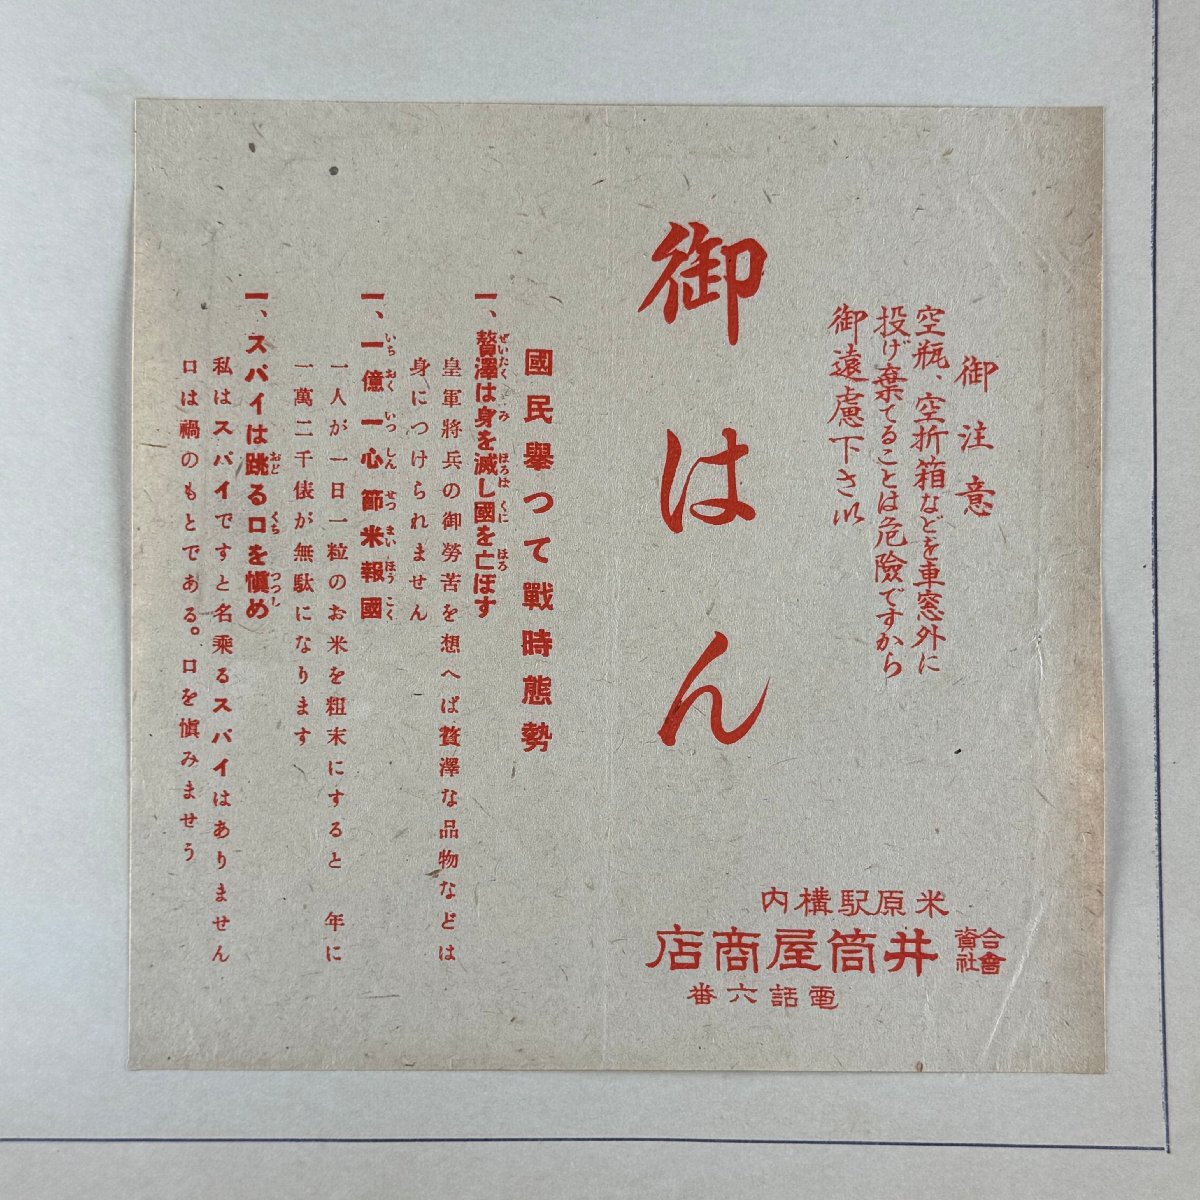 御注意
空瓶、空折箱などを車窓外に
投げ棄てることは危險ですから
御遠慮下さい
御はん
米原駅構内
合資會社 井筒屋商店
電話六番
國民擧つて戰時態勢
一、贅澤は身を滅し國を亡ぼす
ぜいたく み ほろぼ くに ほろ
皇軍將兵の御勞苦を想へば贅澤な品物などは
身につけられません
一、一億一心節米報國
いちおくいつしんせつまいほうこく
一人が一日一粒のお米を粗末にすると 年に
一萬二千俵が無駄になります
一、スパイは跳る口を愼め
おど くち つつし
私はスパイですと名乘るスパイはありません
口は禍のもとである。口を愼みませう